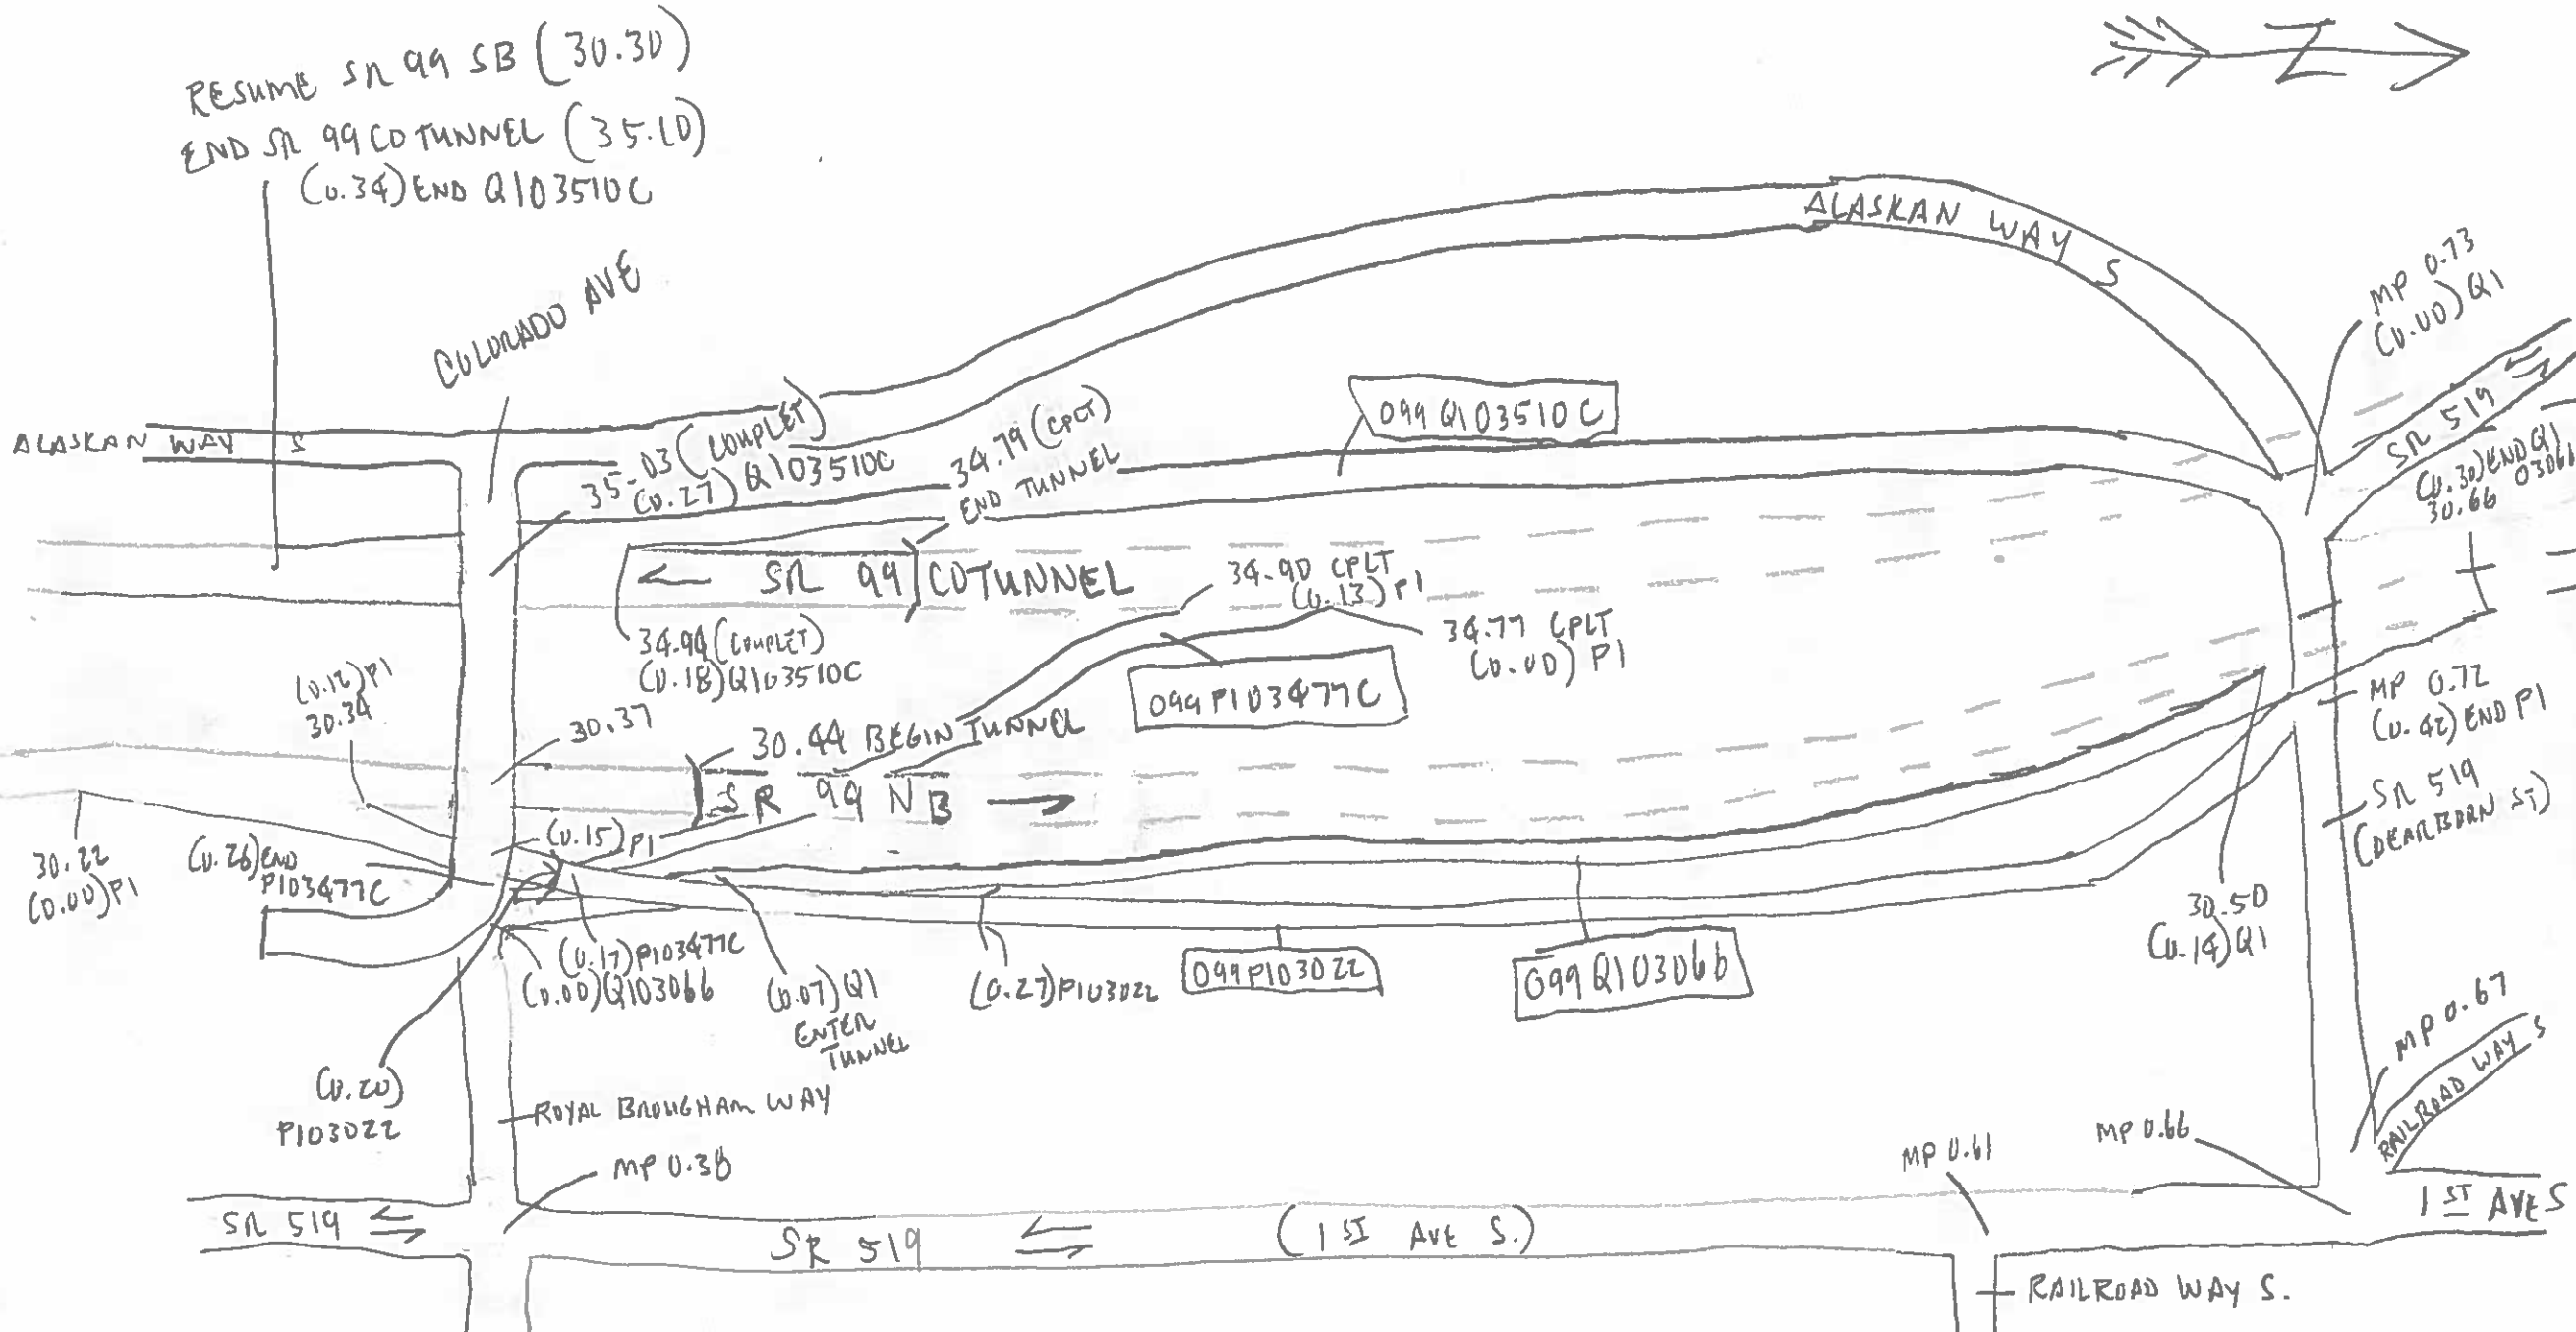 RESUME SR 99 SB (30.30)
END SR 99 CO TUNNEL (35.10)
(0.34) END Q103510C
Z
COLORADO AVE
ALASKAN WAY S
MP 0.73
(0.00) Q1
SR 519
(0.30) END Q1
03066
30.66
ALASKAN WAY S
35.03 (COUPLET)
(0.27) Q103510C
34.79 (CPLT)
END TUNNEL
099Q103510C
← SR 99 CO TUNNEL
34.90 CPLT
(0.13) P1
34.77 CPLT
(0.00) P1
34.94 (COUPLET)
(0.18) Q103510C
099P103477C
(0.12) P1
30.34
30.37
30.44 BEGIN TUNNEL
SR 99 NB →
MP 0.72
(0.42) END P1
SR 519
(DEARBORN ST)
30.22
(0.00) P1
(0.26) END
P103477C
(0.15) P1
(0.17) P103477C
(0.00) Q103066
(0.07) Q1
ENTER
TUNNEL
(0.27) P103022
099P103022
099Q103066
30.50
(0.14) Q1
(0.20)
P103022
ROYAL BROUGHAM WAY
MP 0.38
MP 0.61
MP 0.66
MP 0.67
RAILROAD WAY S
SR 519
SR 519
(1ST AVE S.)
1ST AVE S
RAILROAD WAY S.